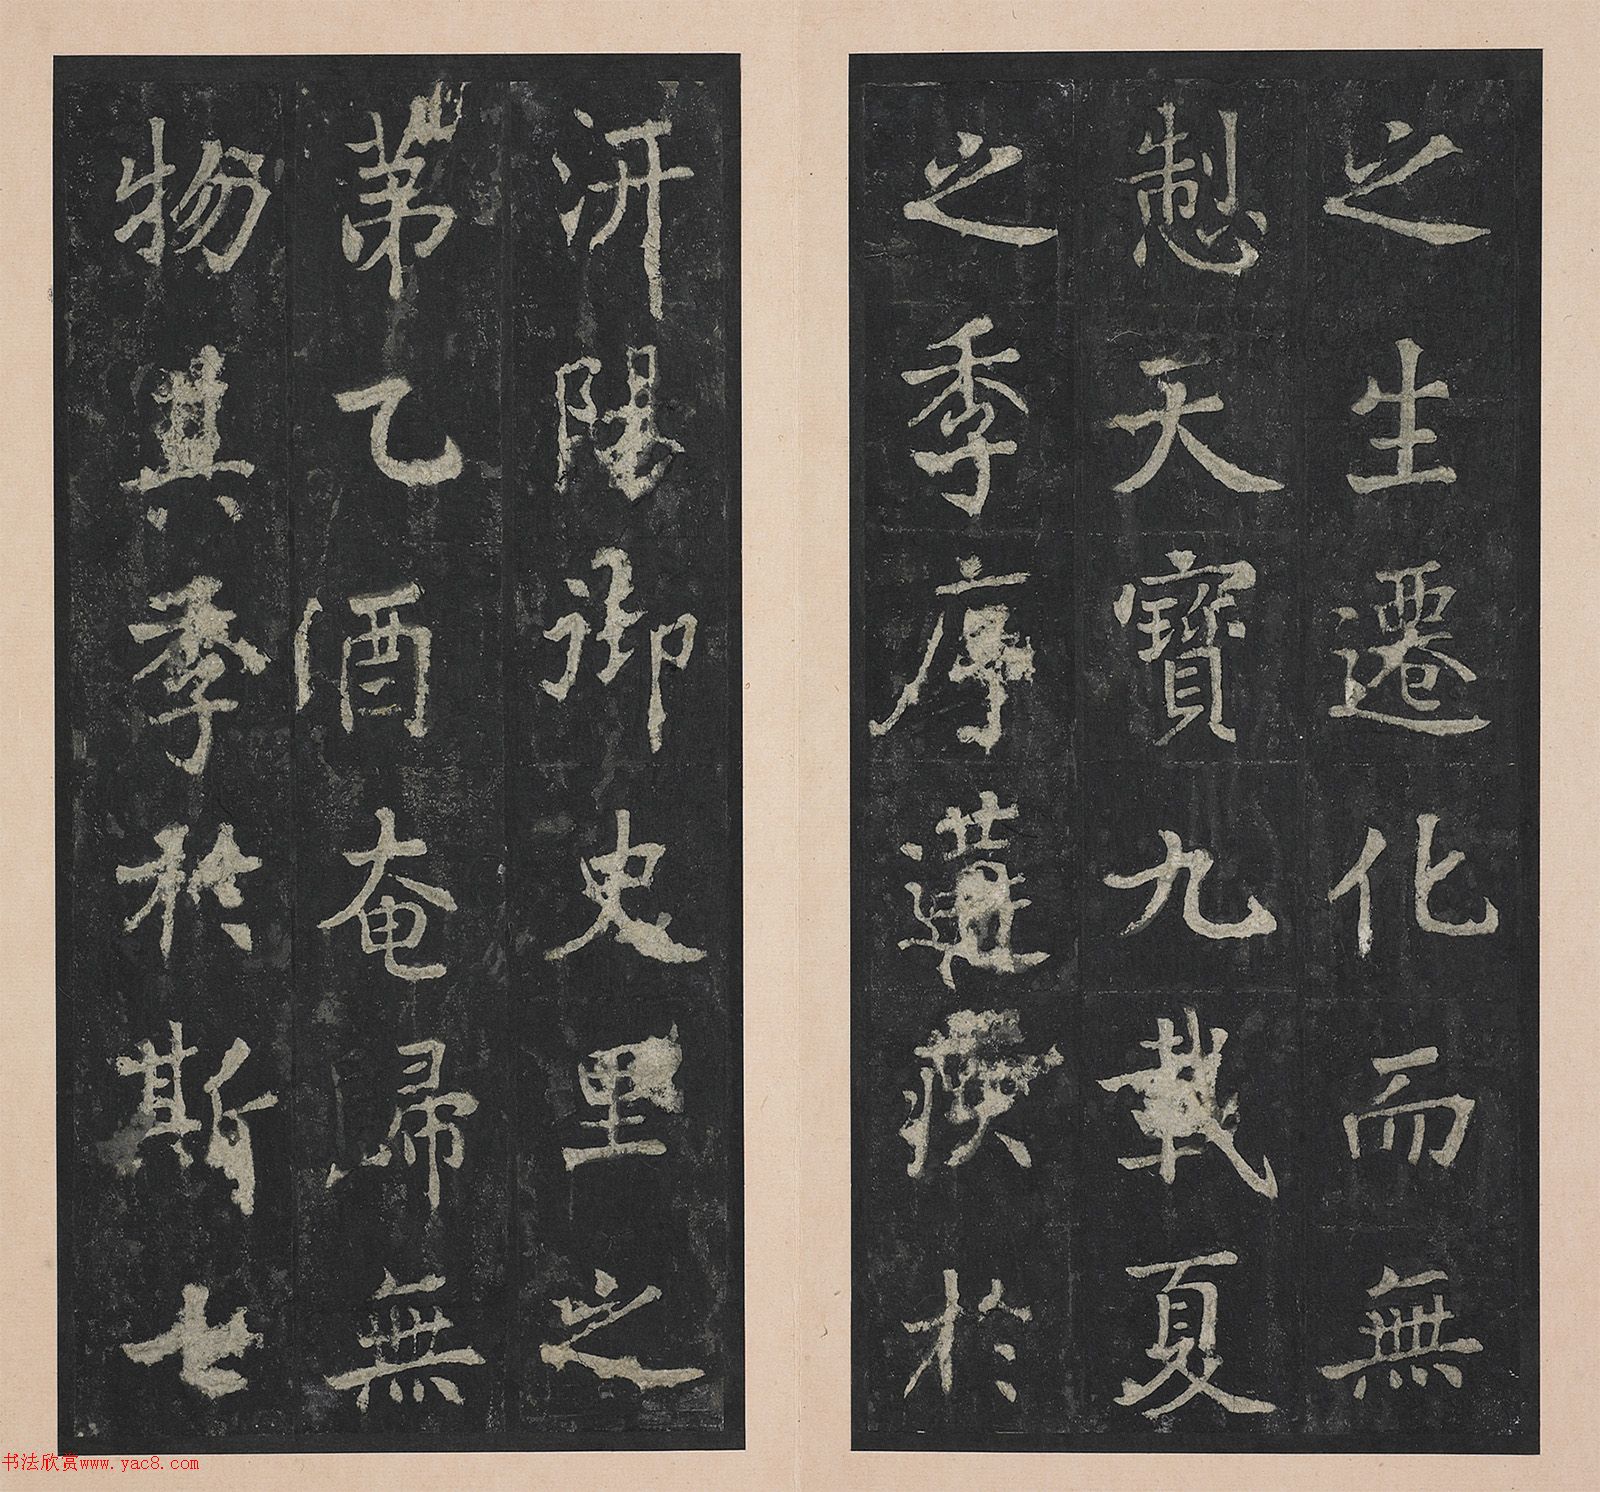 之生遷化而無
製天寶九載夏
之季序遘疾於
汧陽御史里之
苐乙酒奄歸無
物其季於斯七
书法欣赏www.yac8.com